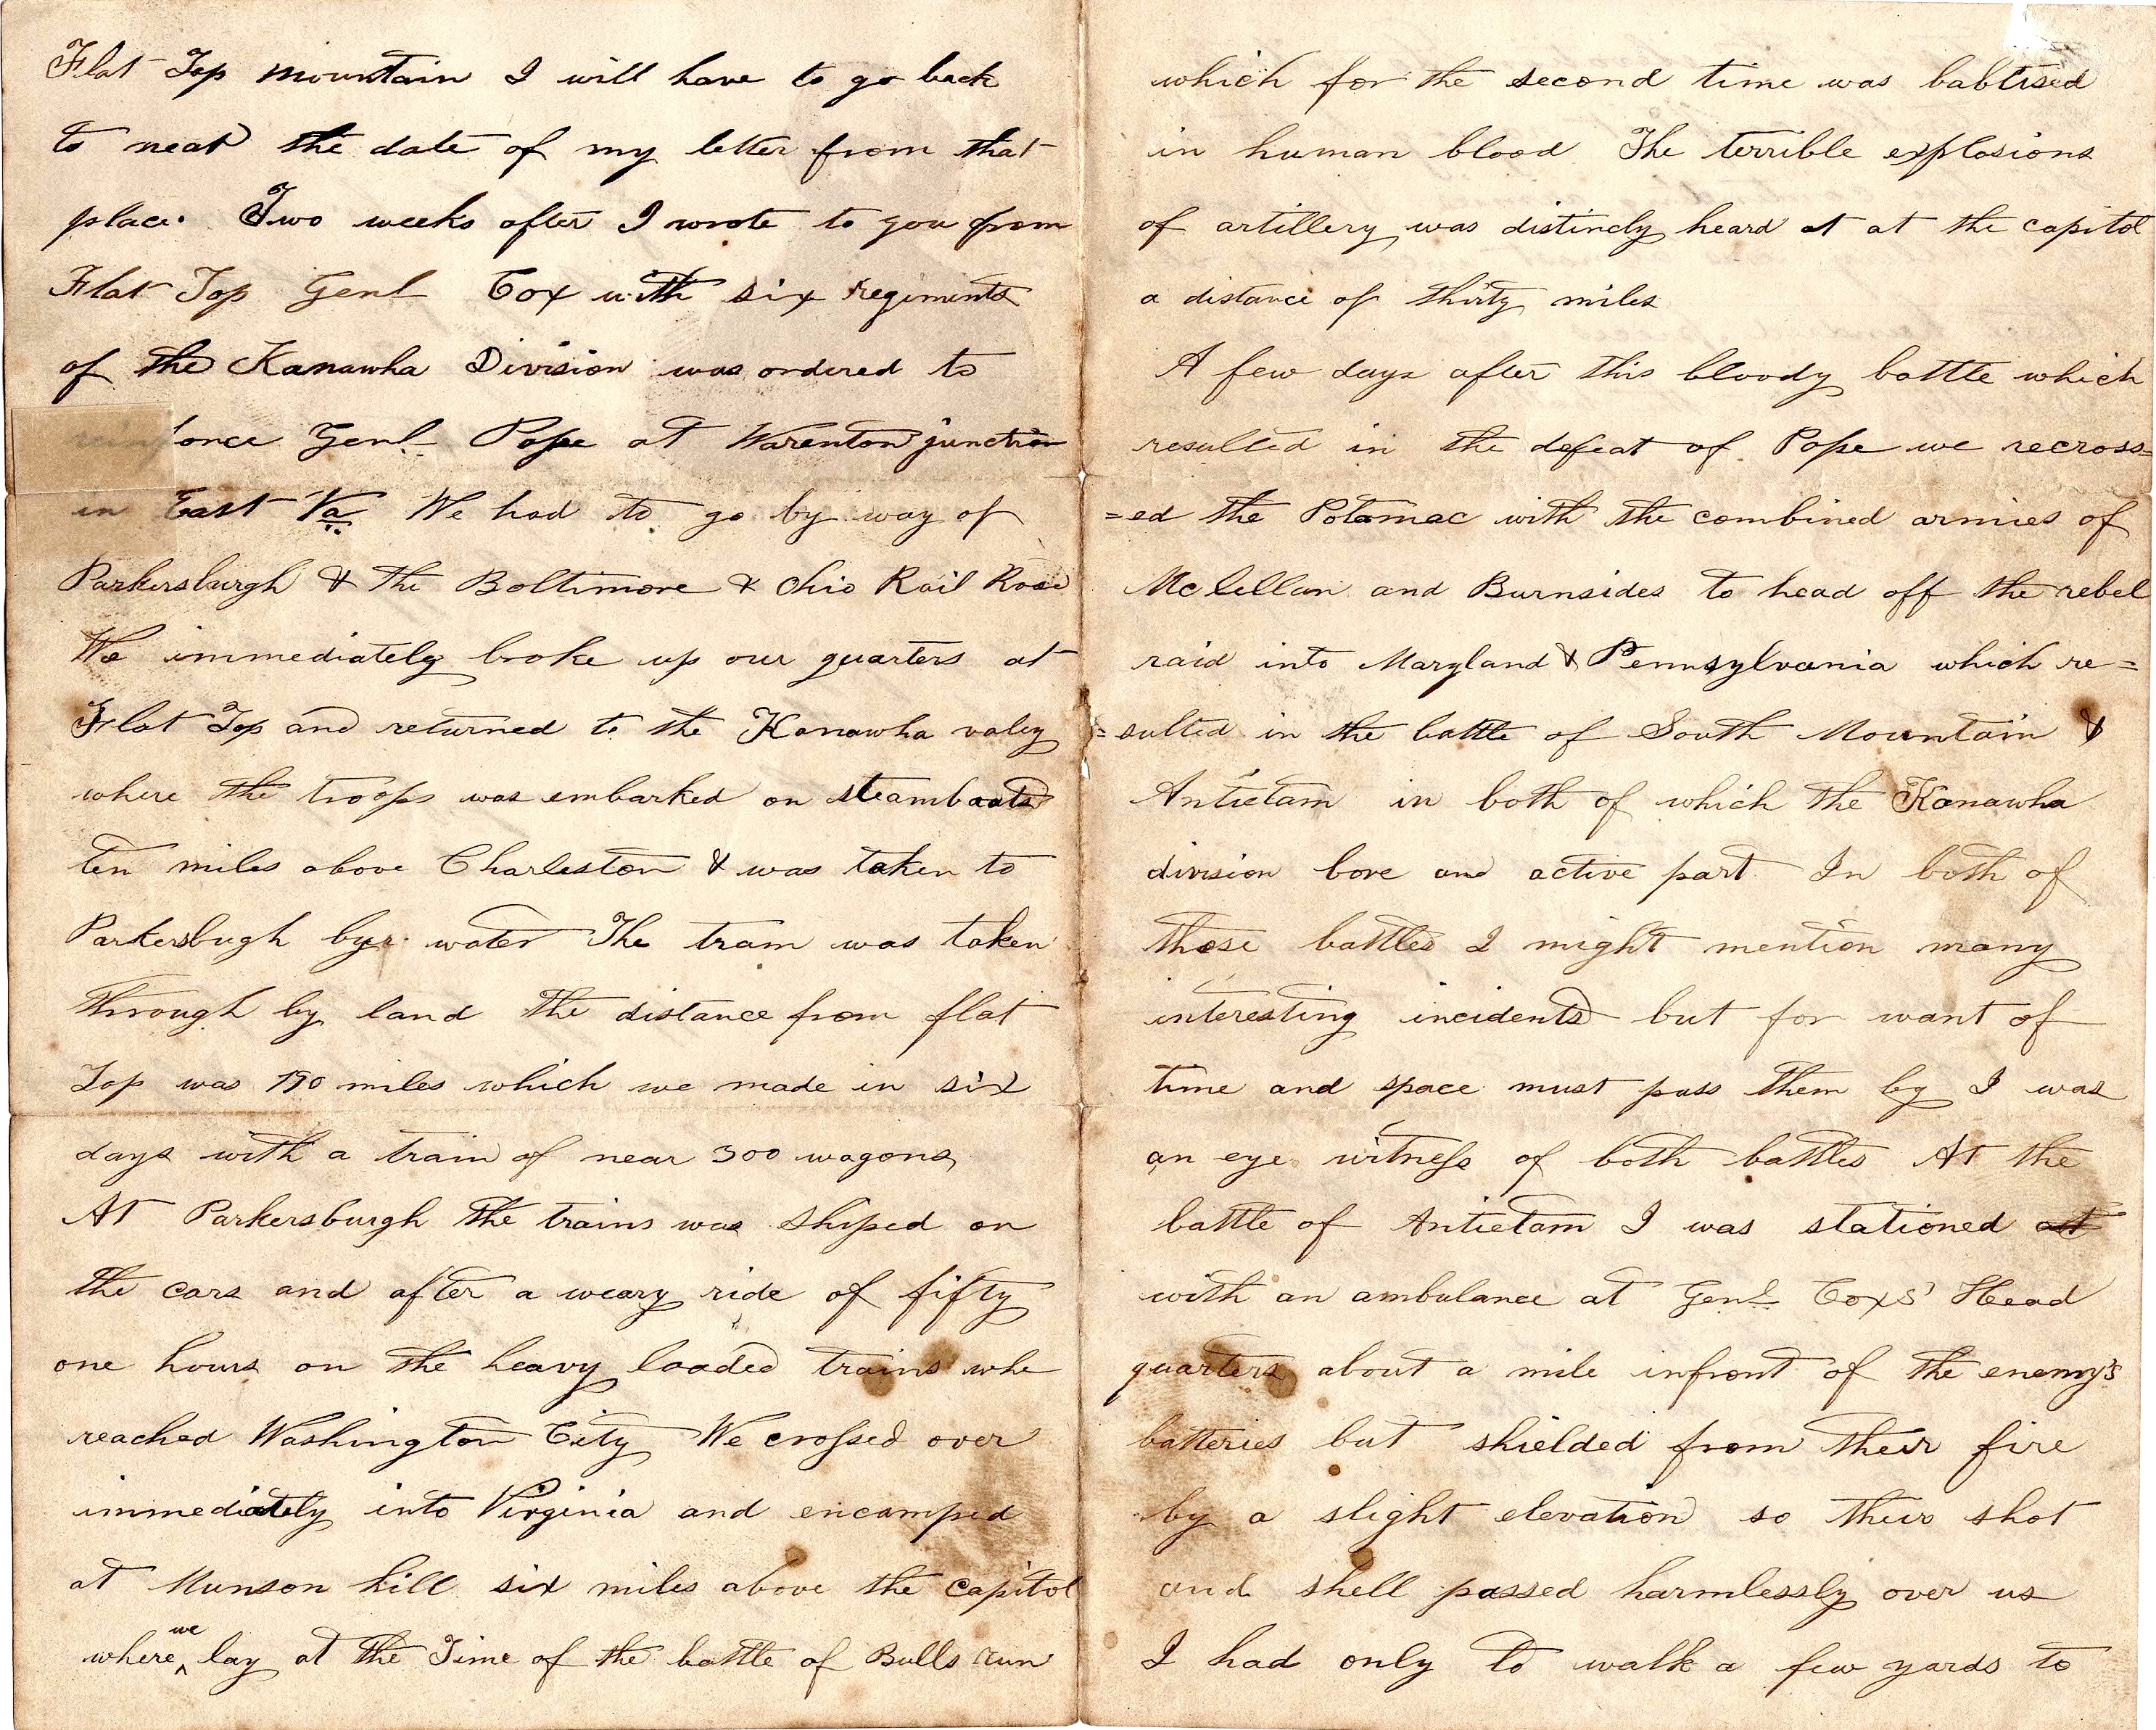 Flat Top mountain I will have to go back
to near the date of my letter from that
place. Two weeks after I wrote to you from
Flat Top Genl Cox with six regiments
of the Kanawha Division was ordered to
reinforce Genl Pope at Warenton junction
in East Va We had to go by way of
Parkersburgh & the Boltimore & Ohio Rail Road
We immediately broke up our quarters at
Flat Top and returned to the Kanawha valey
where the troops was embarked on steamboats
ten miles above Charleston & was taken to
Parkersbugh by water The tram was taken
through by land the distance from flat
Top was 190 miles which we made in six
days with a train of near 300 wagons,
At Parkersburgh the trains was shiped on
the cars and after a weary ride of fifty
one hours on the heavy loaded trains whe
reached Washington City We crossed over
immediately into Virginia and encamped
at Munson hill six miles above the capitol
where we lay at the Time of the battle of Bulls run
which for the second time was babtised
in human blood The terrible explosions
of artillery was distincly heard at at the capitol
a distance of thirty miles
A few days after this bloody battle which
resulted in the defeat of Pope we recross=
=ed the Potomac with the combined armies of
Mclellan and Burnsides to head off the rebel
raid into Maryland & Pennsylvania which re=
=sulted in the battle of South Mountain &
Antietam in both of which the Kanawha
division bore and active part In both of
those battles I might mention many
interesting incidents but for want of
time and space must pass them by I was
an eye witness of both battles At the
battle of Antietam I was stationed at
with an ambulance at Genl Coxs' Head
quarters about a mile infront of the enemy's
batteries but shielded from their fire
by a slight elevation so their shot
and shell passed harmlessly over us
I had only to walk a few yards to